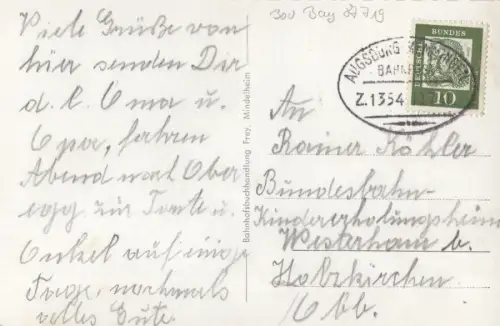 300 Bay 87719
Viele Grüße von
hier senden Dir
d. l. Oma u.
Opa, fahren
Abend nach Ober
egg zur Tante u.
Onkel auf einige
Tage, nochmals
alles Gute.
Bahnhofsbuchhandlung Frey, Mindelheim
AUGSBURG
BAHNPOST
Z.1354
DEUTSCHE BUNDESPOST
10
An
Rainer Köhler
Bundesbahn-
Kindererholungsheim
Westerham b.
Holzkirchen
Obb.